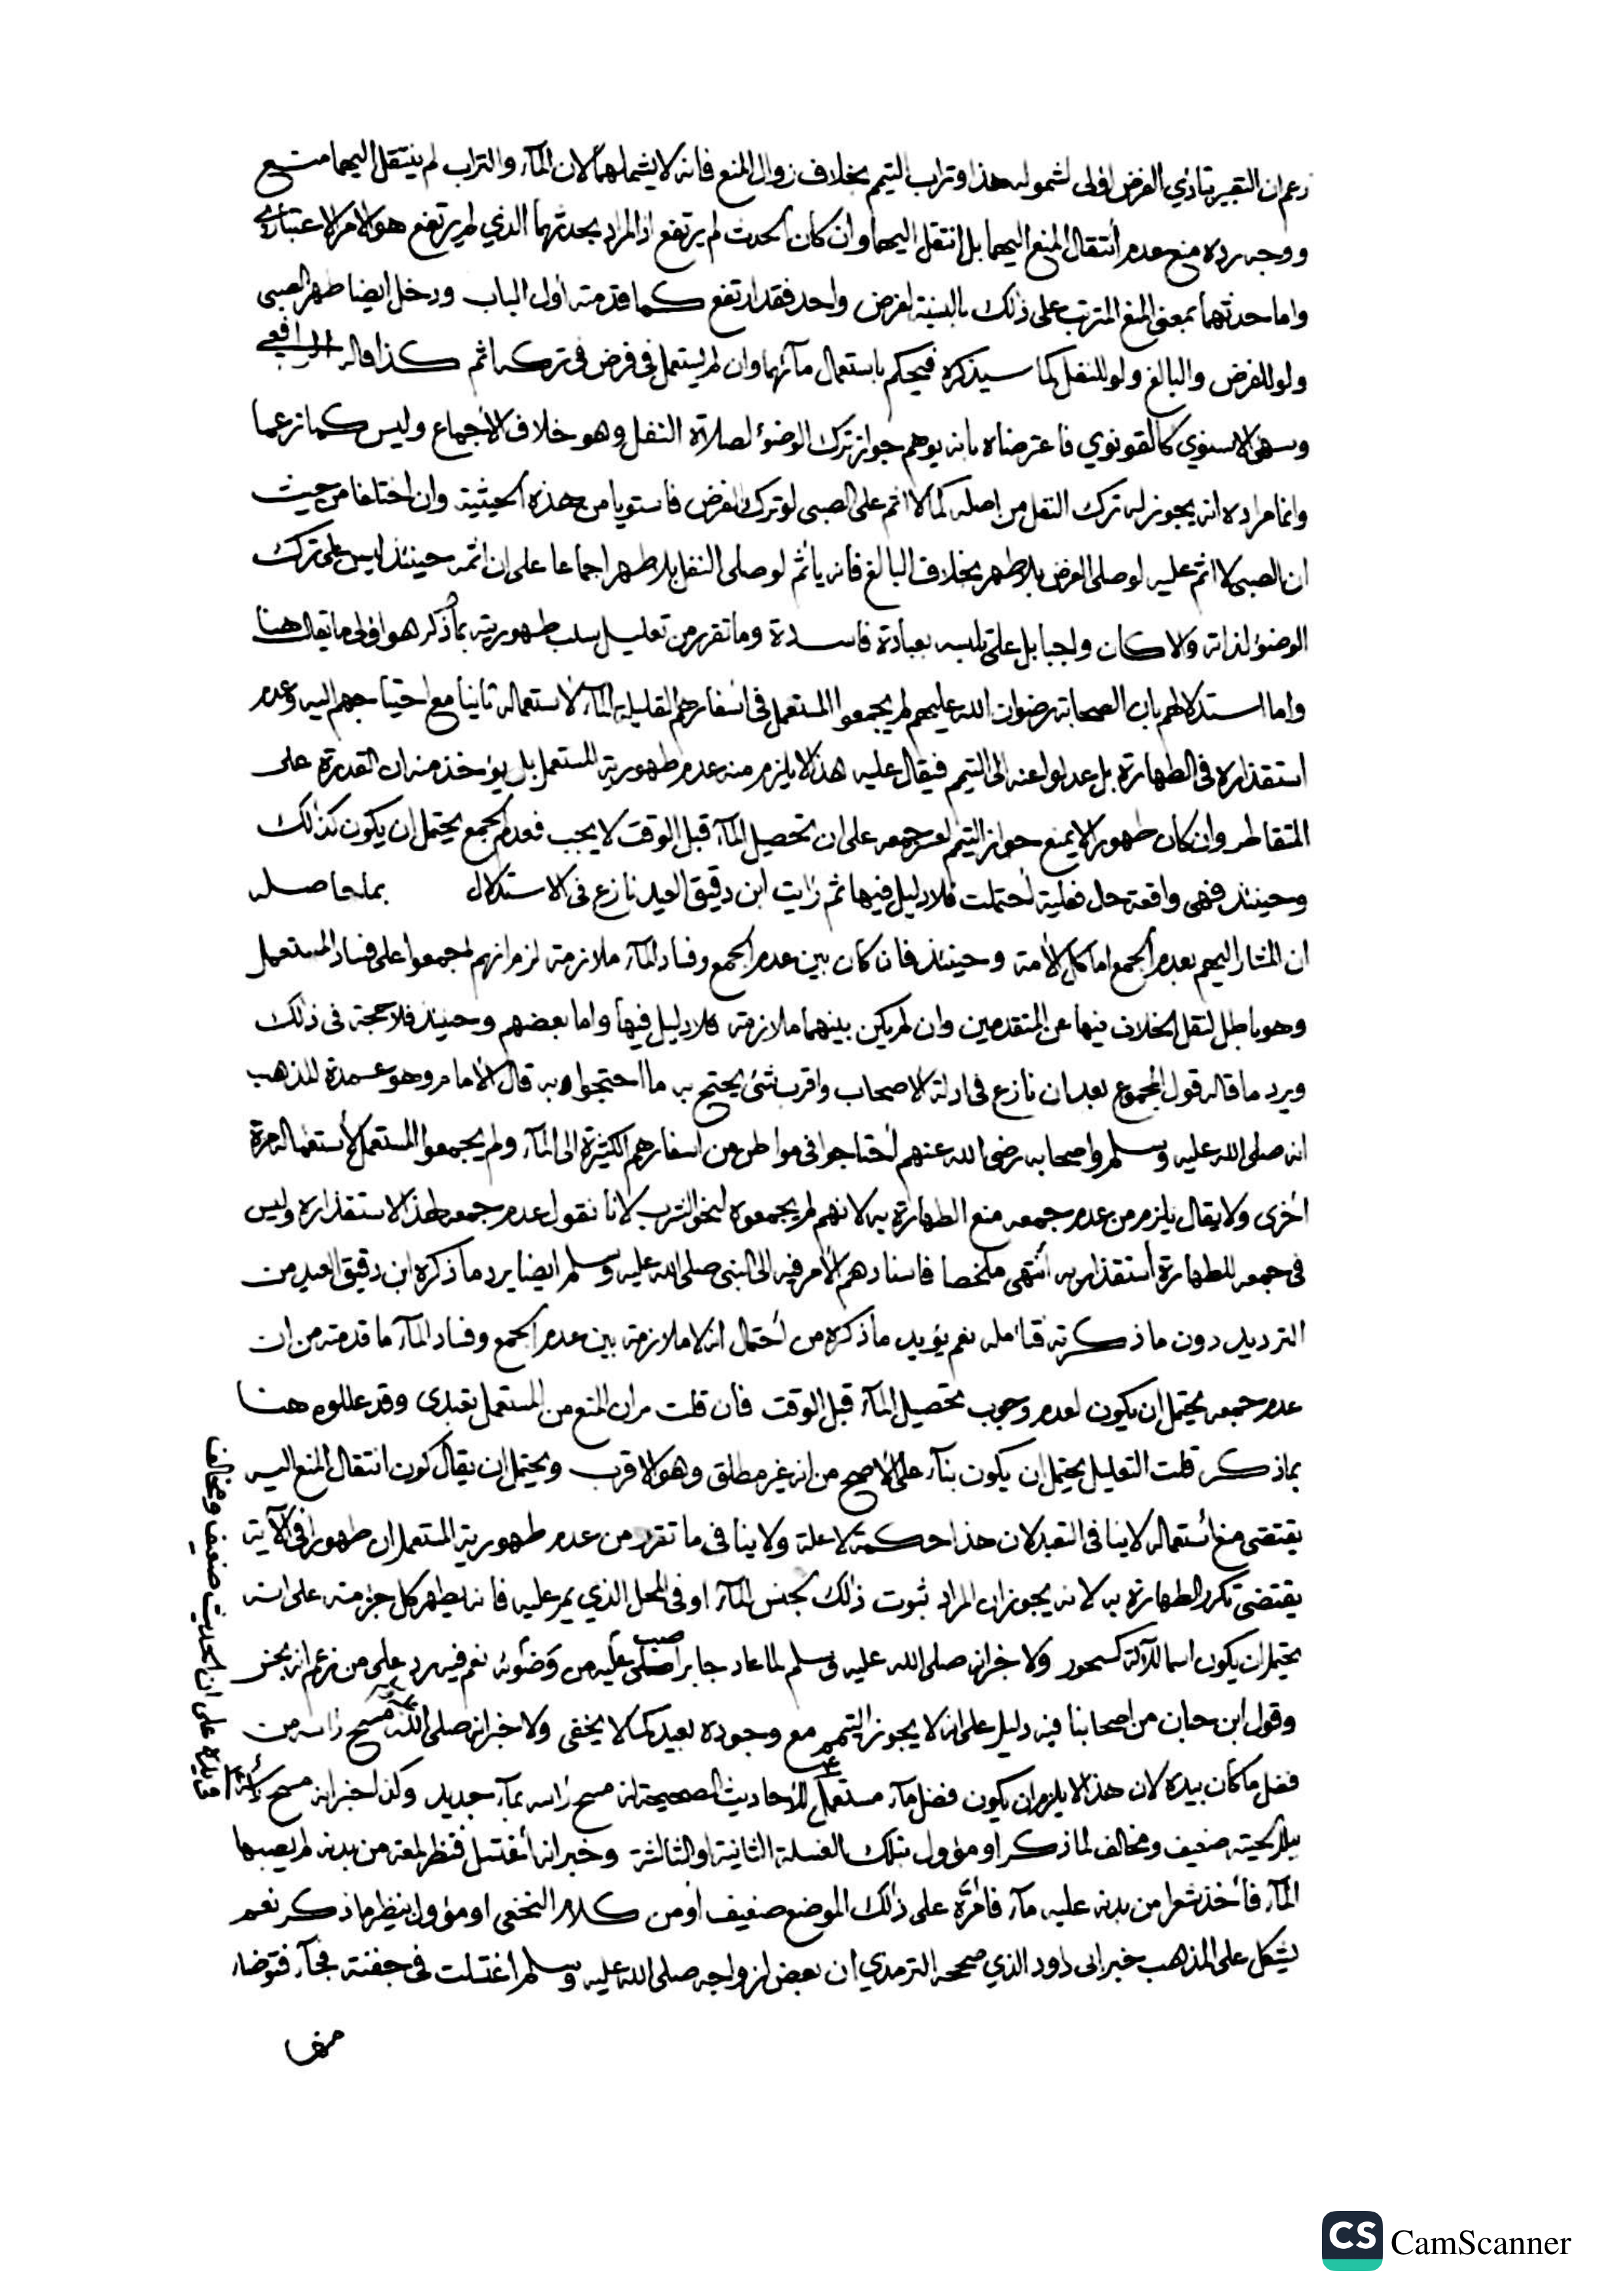 زعم ان التعبير بتادي الفرض اولى لشموله هذا وتراب التيمم بخلاف زوال المنع فانه لا يشملهما لان المآء والتراب لم ينتقل اليهما منع
ووجه رده منع عدم أنتقال المنع اليهما بل انتقل اليهما وان كان الحدث لم يرتفع اذ المراد بحدثهما الذي لم يرتفع هو الامر الاعتباري
واما حدثهما بمعنى المنع المترتب على ذلك بالنسبة لفرض واحد فقد ارتفع كما قدمته اول الباب ودخل ايضا طهر الصبى
ولو للفرض والبالغ ولو للنفل كما سيذكره فيحكم باستعمال مآئهما وان لم يستعمل في فرض في تركه اثم كذا قاله الرافعي
وسهى الاسنوي كالقونوي فاعترضاه بانه يوهم جواز ترك الوضوٴ لصلاة النفل وهو خلاف الاجماع وليس كما زعما
وانما مراده انه يجوز له ترك النفل من اصله كما لا اثم على الصبى لو ترك الفرض فاستويا من هذه الحيثية وان اختلفا من حيث
ان الصبى لا اثم عليه لو صلى الفرض بلا طهر بخلاف البالغ فانه يأثم لو صلى النفل بلا طهر اجماعا على ان اثمه حينئذ ليس على ترك
الوضوٴ لذاته والا كان واجبا بل على تلبسه بعبادة فاسدة وما تقرر من تعليل سلب طهوريته بما ذكر هو اولى ما يقال هنا
واما استدلالهم بان الصحابة رضوان الله عليهم لم يجمعوا المستعمل في اسفارهم القليلة المآء لاستعماله ثانيا مع احتياجهم اليه وعدم
استقذاره في الطهارة بل عدلوا عنه الى التيمم فيقال عليه هذا لا يلزم منه عدم طهورية المستعمل بل يوٴخذ منه ان القدرة على
المتقاطر وان كان طهورا لا يمنع جواز التيمم لعسر جمعه على ان تحصيل المآء قبل الوقت لا يجب فعدم الجمع يحتمل ان يكون كذلك
وحينئذ فهي واقعة حال فعلية أحتملت فلا دليل فيها ثم رايت ابن دقيق العيد نازع في الاستدلال بما حاصله
ان المشار اليهم بعدم الجمع اما كل الأمة وحينئذ فان كان بين عدم الجمع وفساد المآء ملازمة لزم انهم اجمعوا على فساد المستعمل
وهو باطل لنقل الخلاف فيها عن المتقدمين وان لم يكن بينهما ملازمة فلا دليل فيها واما بعضهم وحينئذ فلا حجة في ذلك
ويرد ما قاله قول المجموع بعد ان نازع في ادلة الاصحاب واقرب شئ يحتج به ما احتجوا به قال الأمام وهو عمدة المذهب
انه صلى الله عليه وسلم واصحابه رضى الله عنهم أحتاجوا في مواطن من اسفارهم الكثيرة الى المآء ولم يجمعوا المستعمل لأستعماله مرة
أخرى ولا يقال يلزم من عدم جمعه منع الطهارة به لانهم لم يجمعوه لنحو الشرب لانا نقول عدم جمعه لهذا لاستقذاره وليس
في جمعه للطهارة أستقذار به أنتهى ملخصا فاسنادهم الامر فيه الى النبى صلى الله عليه وسلم ايضا يرد ما ذكره ابن دقيق العيد من
الترديد دون ما ذكرته فتامله نعم يؤيد ما ذكره من أحتمال انه لا ملازمة بين عدم الجمع وفساد المآء ما قدمته من ان
عدم جمعه يحتمل ان يكون لعدم وجوب تحصيل المآء قبل الوقت فان قلت مر ان المنع من المستعمل تعبدى وقد عللوه هنا
بما ذكر قلت التعليل يحتمل ان يكون بنآء على الاصح من انه غير مطلق وهو الاقرب ويحتمل ان يقال كون انتقال المنع اليه
يقتضى منع أستعماله لا ينافى التعبد لان هذا حكمة لا علة ولا ينافى ما تقرر من عدم طهورية المستعمل ان طهورا في الآية
يقتضى تكرر الطهارة به لانه يجوز ان المراد ثبوت ذلك لجنس المآء او في المحل الذي يمر عليه فانه يطهر كل جزء منه على انه
يحتمل ان يكون اسما للآلة كسحور ولا خبر انه صلى الله عليه وسلم لما عاد جابرا صب عليه من وضوئه نعم فيه رد على من زعم انه نجس
وقول ابن حبان من اصحابنا فيه دليل على انه لا يجوز التيمم مع وجوده بعيد كما لا يخفى ولا خبر انه صلى الله عليه وسلم مسح راسه من
فضل ما كان بيده لان هذا لا يلزم ان يكون فضل مآء مستعمل للأحاديث الصحيحة انه مسح راسه بمآء جديد وكذا خبر انه مسح رأسه
ببلل لحيته ضعيف ومخالف لما ذكر او مؤول بتلك الغسلة الثانية او الثالثة وخبر انه أغتسل فنظر لمعة من بدنه لم يصبها
المآء فأخذ شعرا من بدنه عليه مآء فامره على ذلك الموضع ضعيف او من كلام النخعى او مؤول بنظير ما ذكر نعم
يشكل على المذهب خبر ابى داود الذي صححه الترمذي ان بعض ازواجه صلى الله عليه وسلم اغتسلت في جفنة فجآء فتوضاء
منها
على ان الحديث ضعيف ومخالف